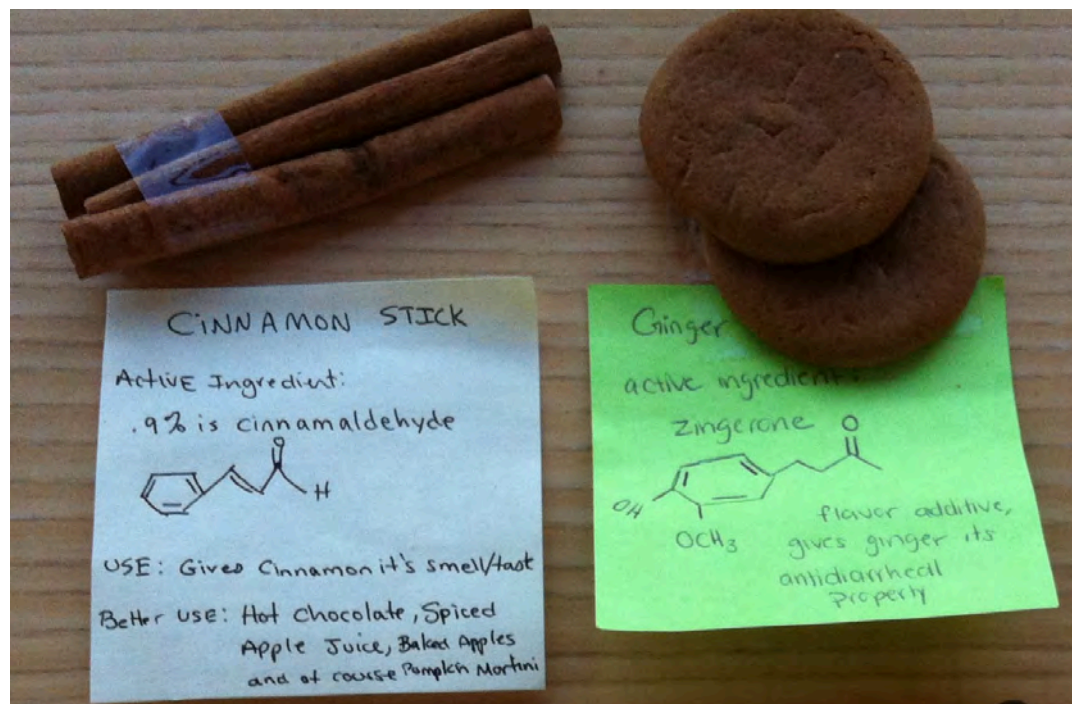 CINNAMON STICK
Active Ingredient:
.9% is cinnamaldehyde
O
H
USE: Gives Cinnamon it's smell/tast
Better USE: Hot Chocolate, Spiced
Apple Juice, Baked Apples
and of course Pumpkin Martini
Ginger
active ingredient:
zingerone
O
OH
OCH3
flavor additive,
gives ginger its
antidiarrheal
property